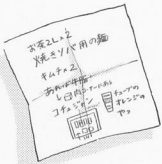 お茶2L×2
焼きソバ用の麺
キムチ×2
あれば牛脂
コチュジャン
チューブの
オレンジの
ヤツ